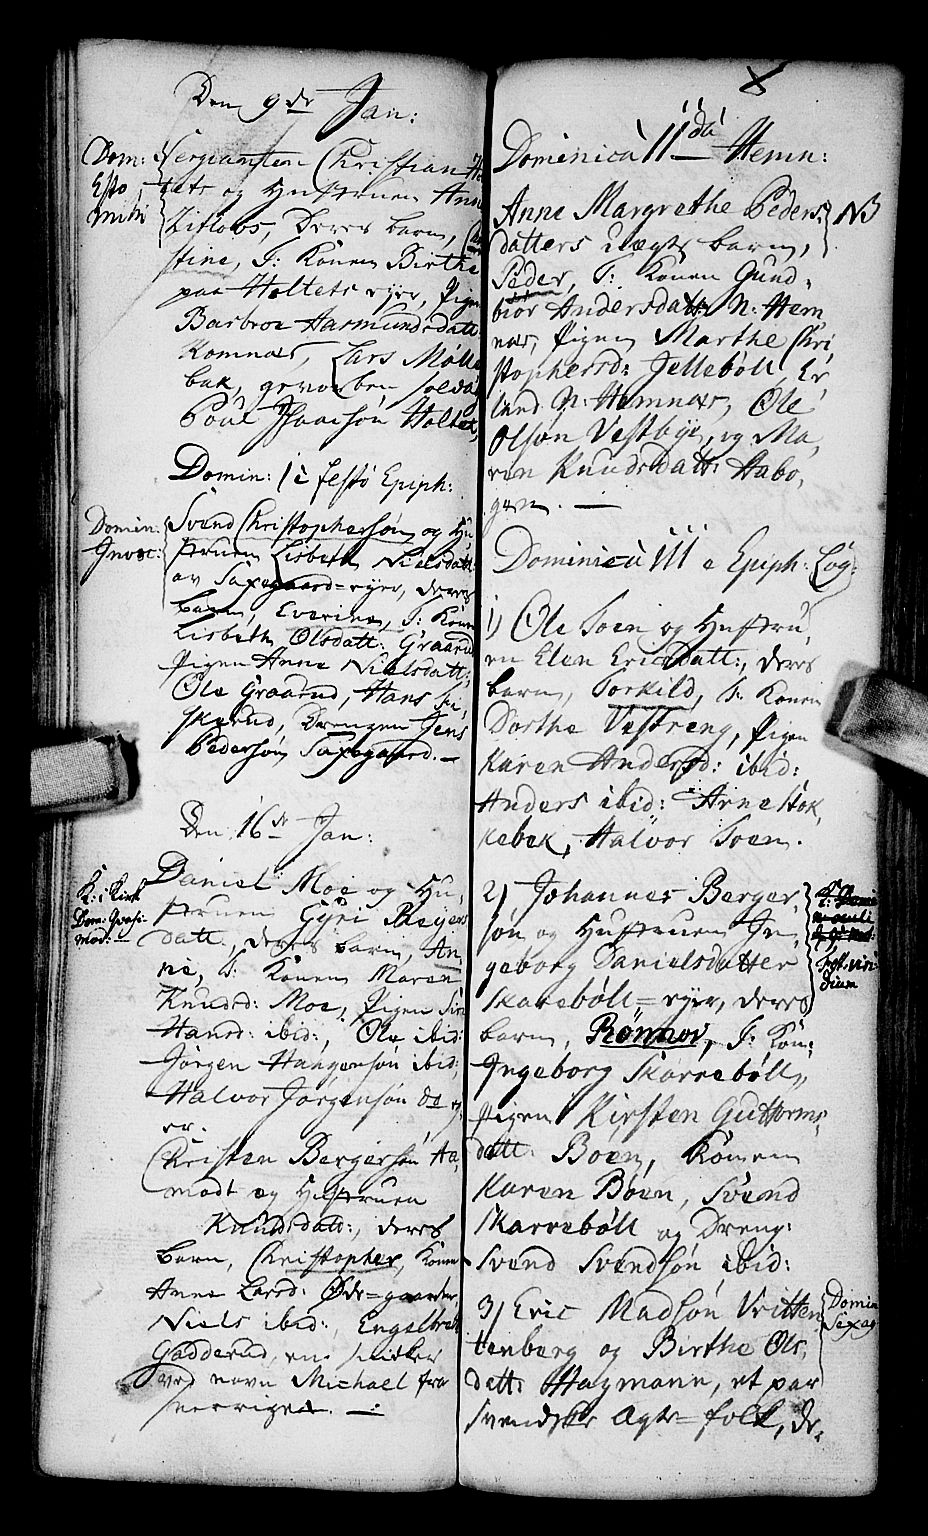 Den 9de Jan:
Dom:
Esto
mihi
Sergianten Christian
og Hustruen Anne
Zitlous, Deres barn, Chri
stine, F: Konen Birthe
paa Holtets eyer, Pigen
Barbroe Aasmundsdatt:
Komnæs, Lars Mølle
bak, gevorben soldat
Poul Isaacsøn Holtet,
Domin: 1 à festo Epiph:
Domin:
Invoc:
Svend Christophersøn og Hu
struen Lisbeth Nielsdatt:
av Saxegaard=eyer, deres
barn, Everine, F: Konen
Lisbeth Olsdatt: Graarud
Pigen Anne Nielsdatt:,
Ole Graarud, Hans
skyrud, Drengen Jens
Pedersøn Saxegaard. —
Den 16de Jan:
K: i Kirk
Dom: Qvasi-
mod: —
Daniel Moe og Hu
struen Gyri Reyers
datt:, deres barn, An
ne, F: Konen Maren
Knudsd: Moe, Pigen Siri
Hansd: ibid:, Ole ibid:
Jørgen Haagensøn ibid:
Halvor Jørgensøn do ey
er.
Christen Bergersøn Aa
modt og Hustruen
Knudsdatt:, deres
barn, Christopher, Konen
Anne Larsd: Øde=gaarden,
Niels ibid:, Engelbret
Gadderud, en snidker
ved navn Michael fra
Sverrige. —
Dominica 11da Hemn:
Anne Margrethe Peders
NB
datters uægte barn,
Peder, F: Konen Gund-
biør Andersdatt: N: Hem
næs, Pigen Marthe Chri
stophersd: Jelleböll, Er
land N: Hemnæs, Ole
Olsøn Vestbye, og Ma,
ren Knudsdatt: Haabo,
gen. —
Dominica III e Epiph: Løg:
1) Ole Soen og Hustru,
en Elen Ericsdatt:, deres
barn, Torkild, F: Konen
Dorthe Vestreng, Pigen
Karen Andersd: ibid:,
Anders ibid: Arne Hok,
kebek, Halvor Soen.
2) Johannes Berger
søn og Hustruen In,
geborg Danielsdatter
Skarreböll=eyer, deres
viri
dium
barn, Rönnov, F: Kon:
Ingeborg Skarreböll,
Pigen Kirsten Guttorms-
datt: Boen, Konen
Karen Böen, Svend
Skarreböll og Dreng:
Svend Svendsøn ibid:
3) Eric Madsøn Vritten
Domin
Sexag
tenberg og Birthe Ols,
datt: Hagmann, et par
svenske Ægte=folk, de,